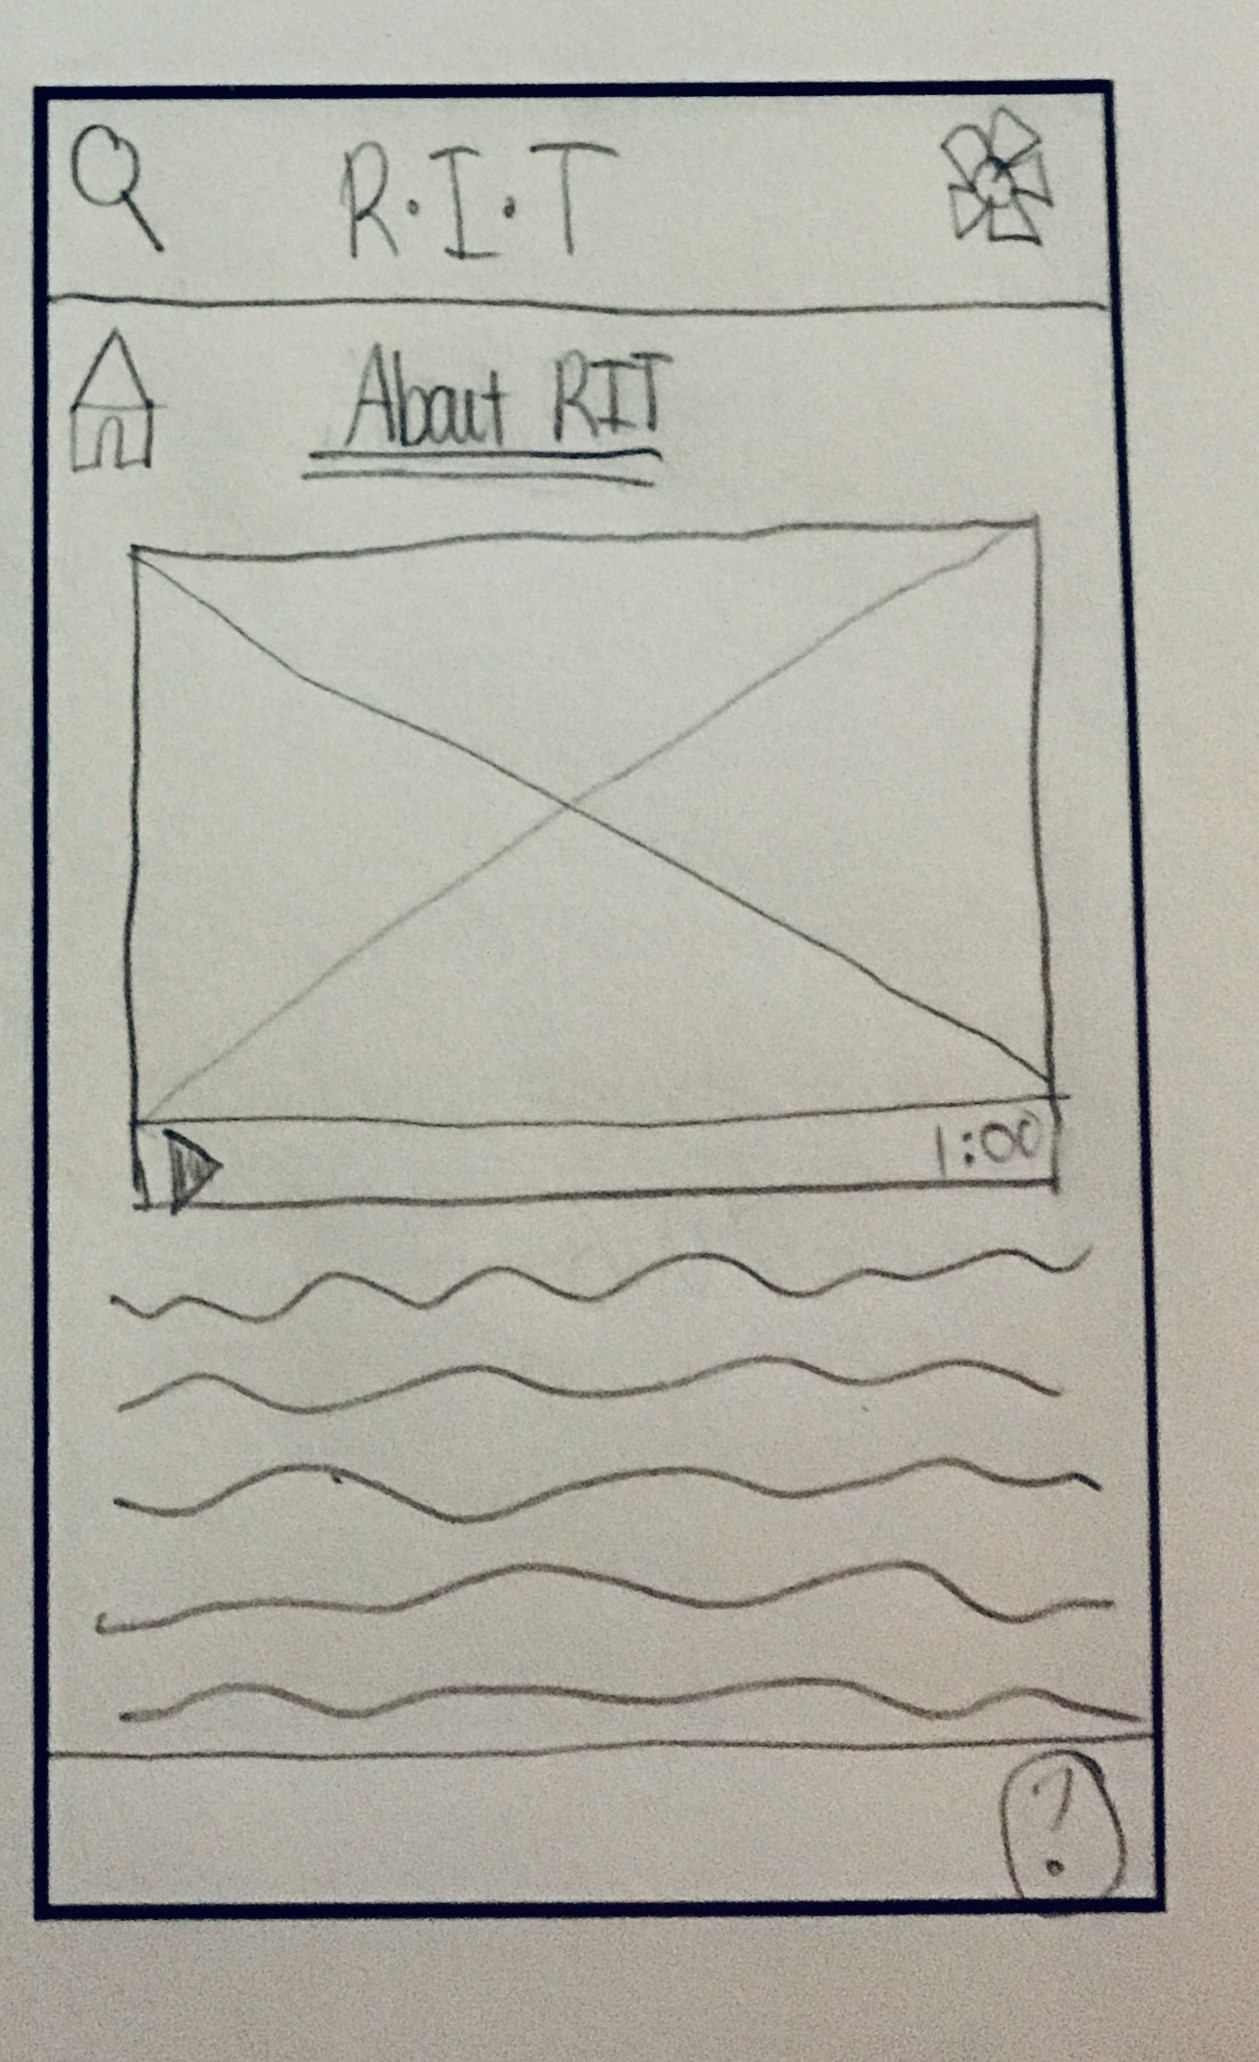 R·I·T
About RIT
1:00
?